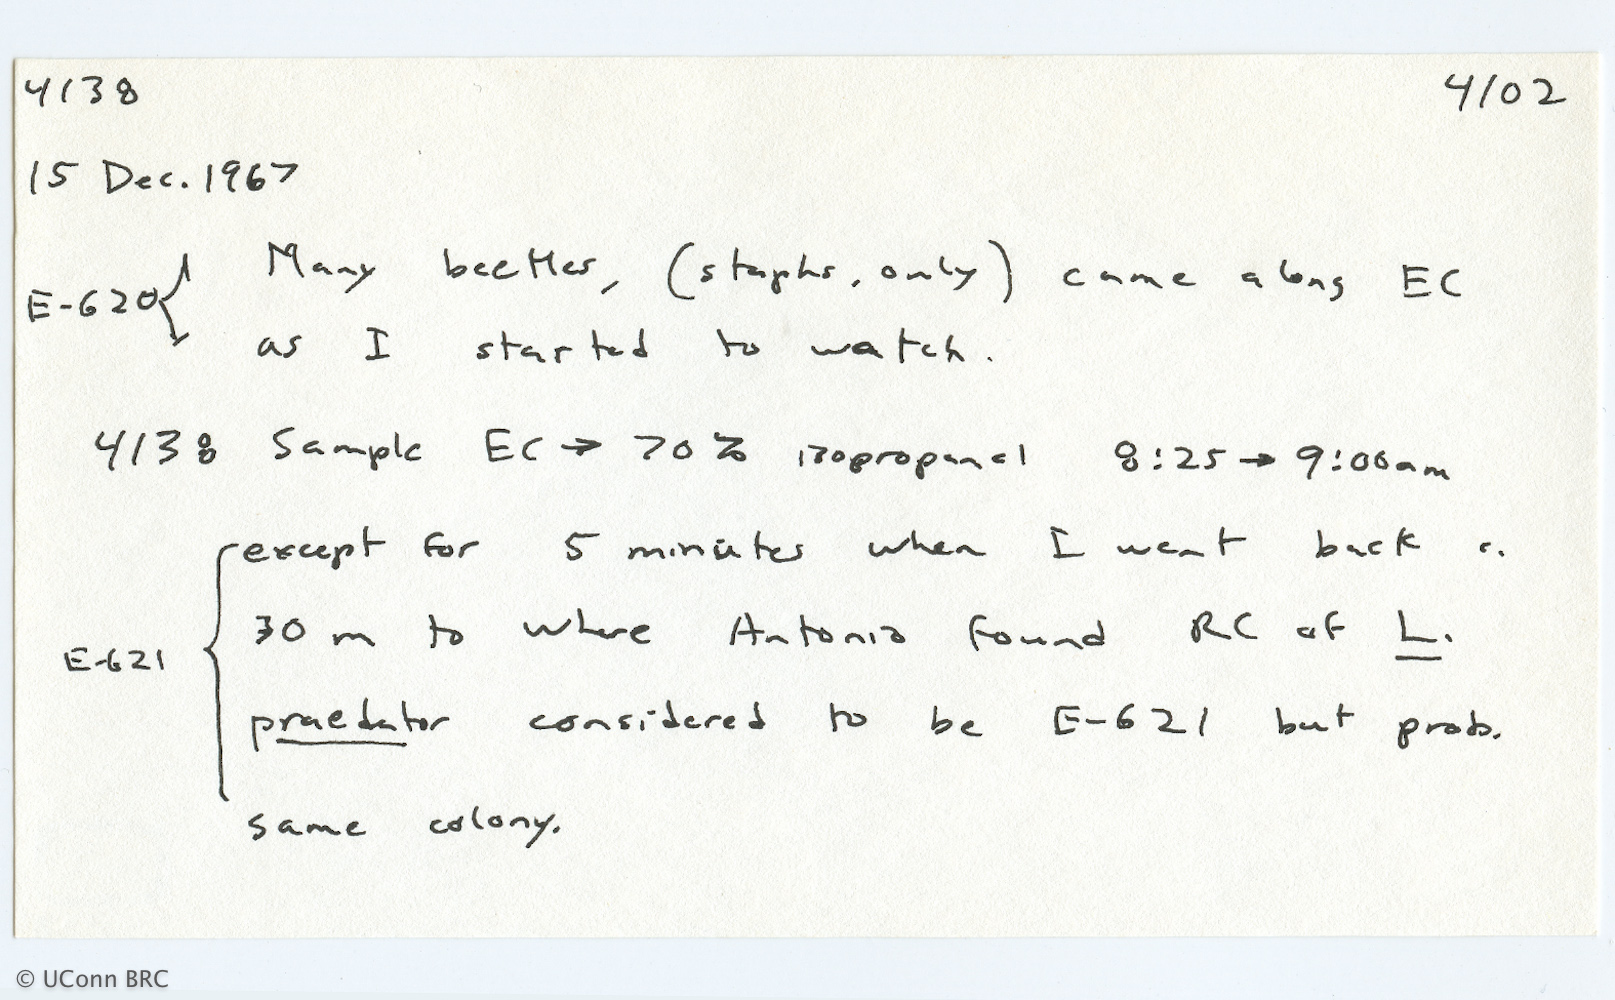 4138 4102
15 Dec. 1967
E-620 { Many beetles, (staphs, only) came along EC
as I started to watch.
4138 Sample EC → 70% isopropanol 8:25 → 9:00am
except for 5 minutes when I went back c.
30 m to where Antonio found RC of L.
E-621 {
praedator considered to be E-621 but prob.
same colony.
© UConn BRC